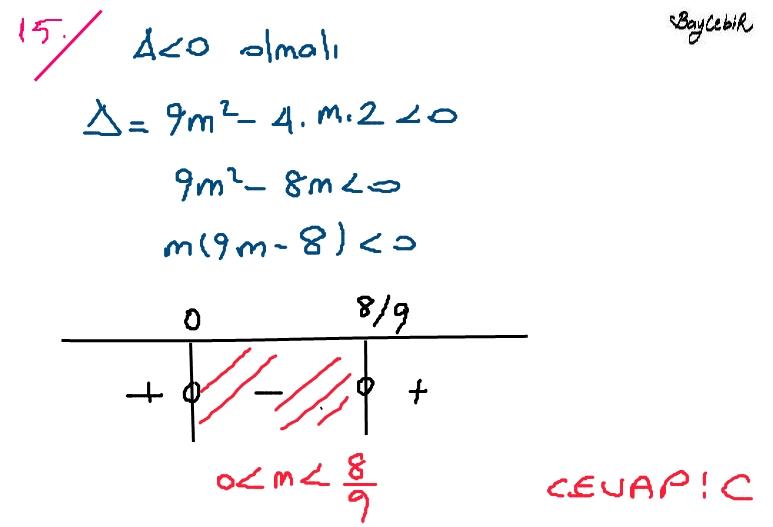 15.
BayCebiR
Δ<0 olmalı
Δ= 9m² - 4.m.2 <0
9m² - 8m <0
m(9m - 8) <0
0 8/9
+ 0 - 0 +
0<m< 8/9
CEVAP: C